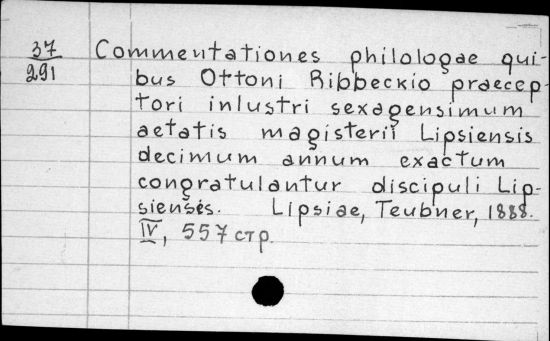 37 Commentationes philologae qui-
291 bus Ottoni Ribbeckio praecep-
tori inlustri sexagensimum
aetatis magisterii Lipsiensis
decimum annum exactum
congratulantur discipuli Lip-
sienses. Lipsiae, Teubner, 1888.
IV, 557 стр.